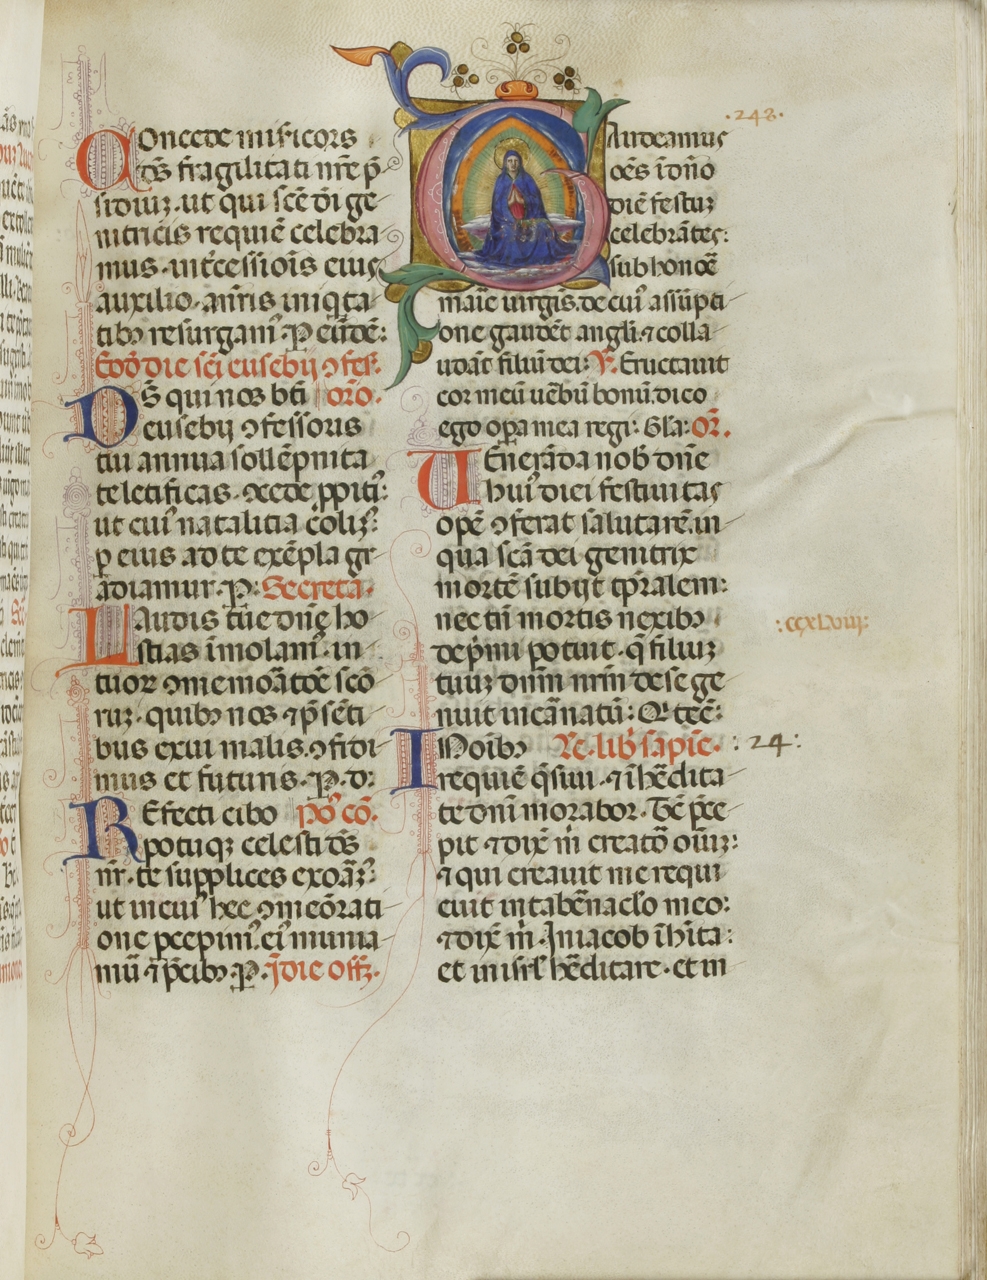 Concede misericors
ds̄ fragilitati nr̄e p̄
sidiuꝫ. ut qui scē dī ge
nitricis requiē celebra
mus. int̄cessiōis eius
auxilio. a nr̄is iniq̇ta
tibꝫ resurgam᾽. ꝑ eūdē:
Eōd̄ die scī eusebij ꝯfes̄.
Ds̄ qui nos bt̄i orō.
eusebij ꝯfessoris
tui annua sollēpnita
te letificas. ꝯcede ꝓpiti᾽:
ut cui᾽ natalitia colim᾽:
ꝑ eius ad te exēpla gr̄
adiamur. ꝑ: Secreta.
Laudis tue dn̄e ho
stias īmolam᾽. in
tuoꝝ ꝯmemorātōe scō
ruꝫ. quibꝫ nos ⁊ p̄sēti
bus exui malis. ꝯfidi
mus et futuris. ꝑ. d:
Refecti cibo po᾽ cō.
potuqꝫ celesti ds̄
nr̄. te supplices exoram᾽:
ut in cui᾽ hec ꝯmeōrati
one pcepim᾽. ei᾽ munia
mur ⁊ p̄cibꝫ. ꝑ. ī die off̄.
.248.
Gaudeamus
oēs ī dn̄o
diē festuꝫ
celebrātes:
sub honoē
marie uirgīs. de cui᾽ assūpti
one gaudēt angl̄i. ⁊ colla
udāt filiū dei: V̄. Eructauit
cor meū uerbū bonū. dico
ego opa mea regi: Gl̄a: Or̄.
Uenerāda nob̄ dn̄e
hui᾽ diei festiuitas
opē ꝯferat salutarē. in
qua scā dei genitrix
mortē subijt tp̄ralem:
nec tn̄ mortis nexibꝫ
dep̄mi potuit. q̄ filiuꝫ
:ccxLviii:
tuuꝫ dn̄m nr̄m de se ge
nuit incarnatū: Q̄ tecū:
In oībꝫ Le. lib᾽ sapīe. :24:
requiē q̄siui. ⁊ ī hēdita
te dn̄i morabor. Tūc p̄ce
pit. ⁊ dix̄ m̄ creatoꝛ oīuꝫ:
⁊ qui creauit me requi
euit in tabernaclo meo:
⁊ dix̄ m̄. In iacob īhīta:
et in isrl̄ hēditare. et in